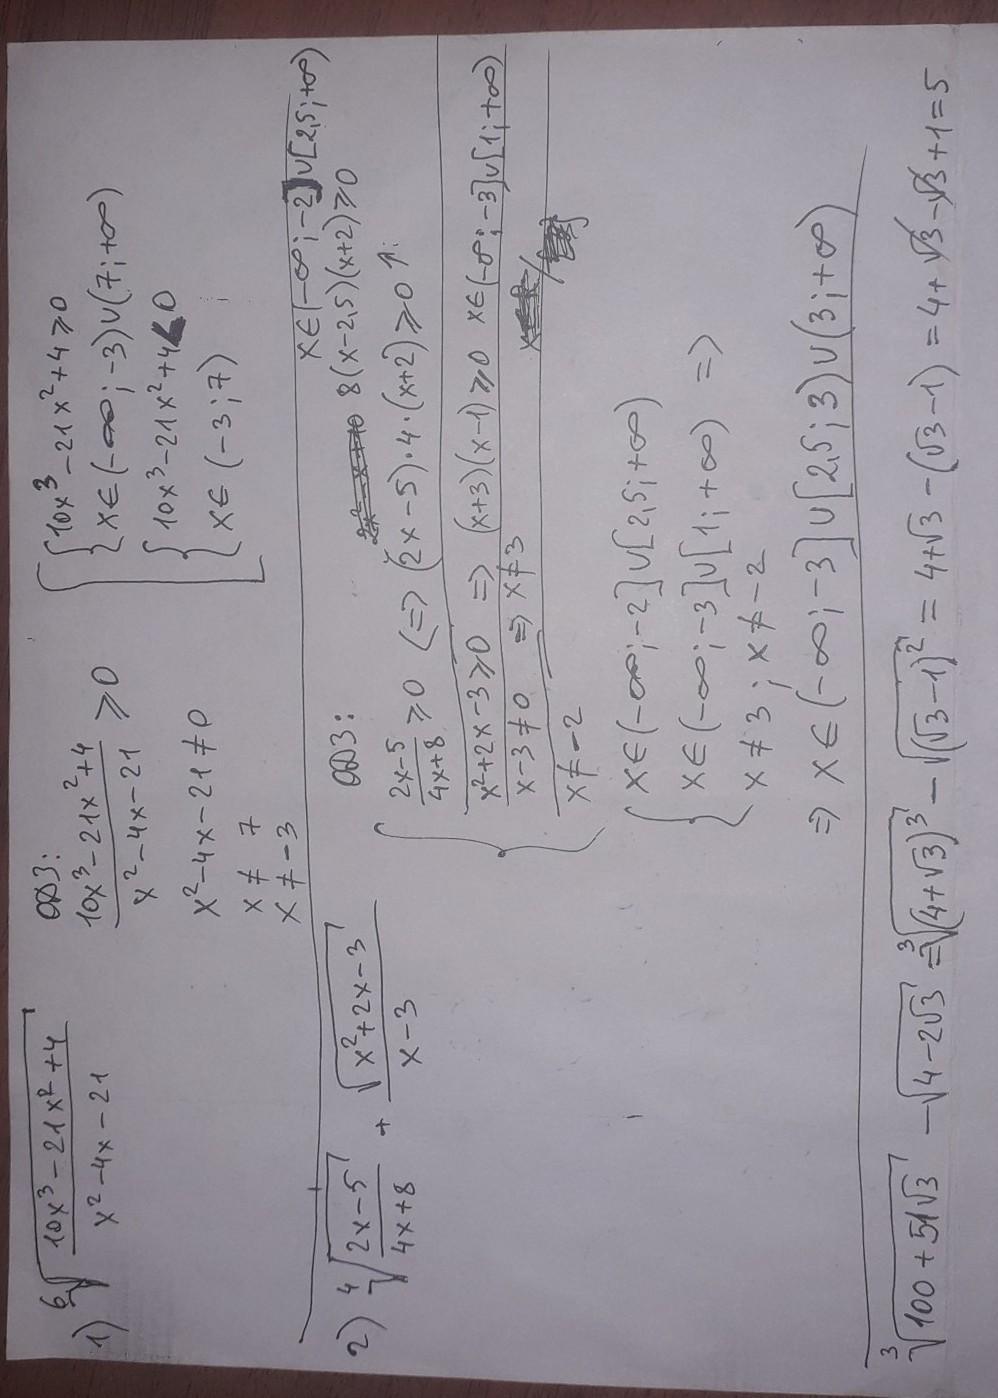 1) ⁶√((10x³ − 21x² + 4)/(x² − 4x − 21))
ОДЗ:
(10x³ − 21x² + 4)/(x² − 4x − 21) ⩾ 0
x² − 4x − 21 ≠ 0
x ≠ 7
x ≠ −3
[ { 10x³ − 21x² + 4 ⩾ 0
x ∈ (−∞; −3) ∪ (7; +∞)
{ 10x³ − 21x² + 4 < 0
x ∈ (−3; 7)
2) ⁴√((2x − 5)/(4x + 8)) + √(x² + 2x − 3)/(x − 3)
ОДЗ:
x ∈ (−∞; −2] ∪ [2,5; +∞)
8(x − 2,5)(x + 2) ⩾ 0
{ (2x − 5)/(4x + 8) ⩾ 0 <=> (2x − 5) · 4 · (x + 2) ⩾ 0 ↑:
x² + 2x − 3 ⩾ 0 => (x + 3)(x − 1) ⩾ 0 x ∈ (−∞; −3] ∪ [1; +∞)
x − 3 ≠ 0 => x ≠ 3
x ≠ −2
{ x ∈ (−∞; −2] ∪ [2,5; +∞)
x ∈ (−∞; −3] ∪ [1; +∞) =>
x ≠ 3; x ≠ −2
=> x ∈ (−∞; −3] ∪ [2,5; 3) ∪ (3; +∞)
³√(100 + 51√3) − √(4 − 2√3) = ³√((4 + √3)³) − √((√3 − 1)²) = 4 + √3 − (√3 − 1) = 4 + √3 − √3 + 1 = 5